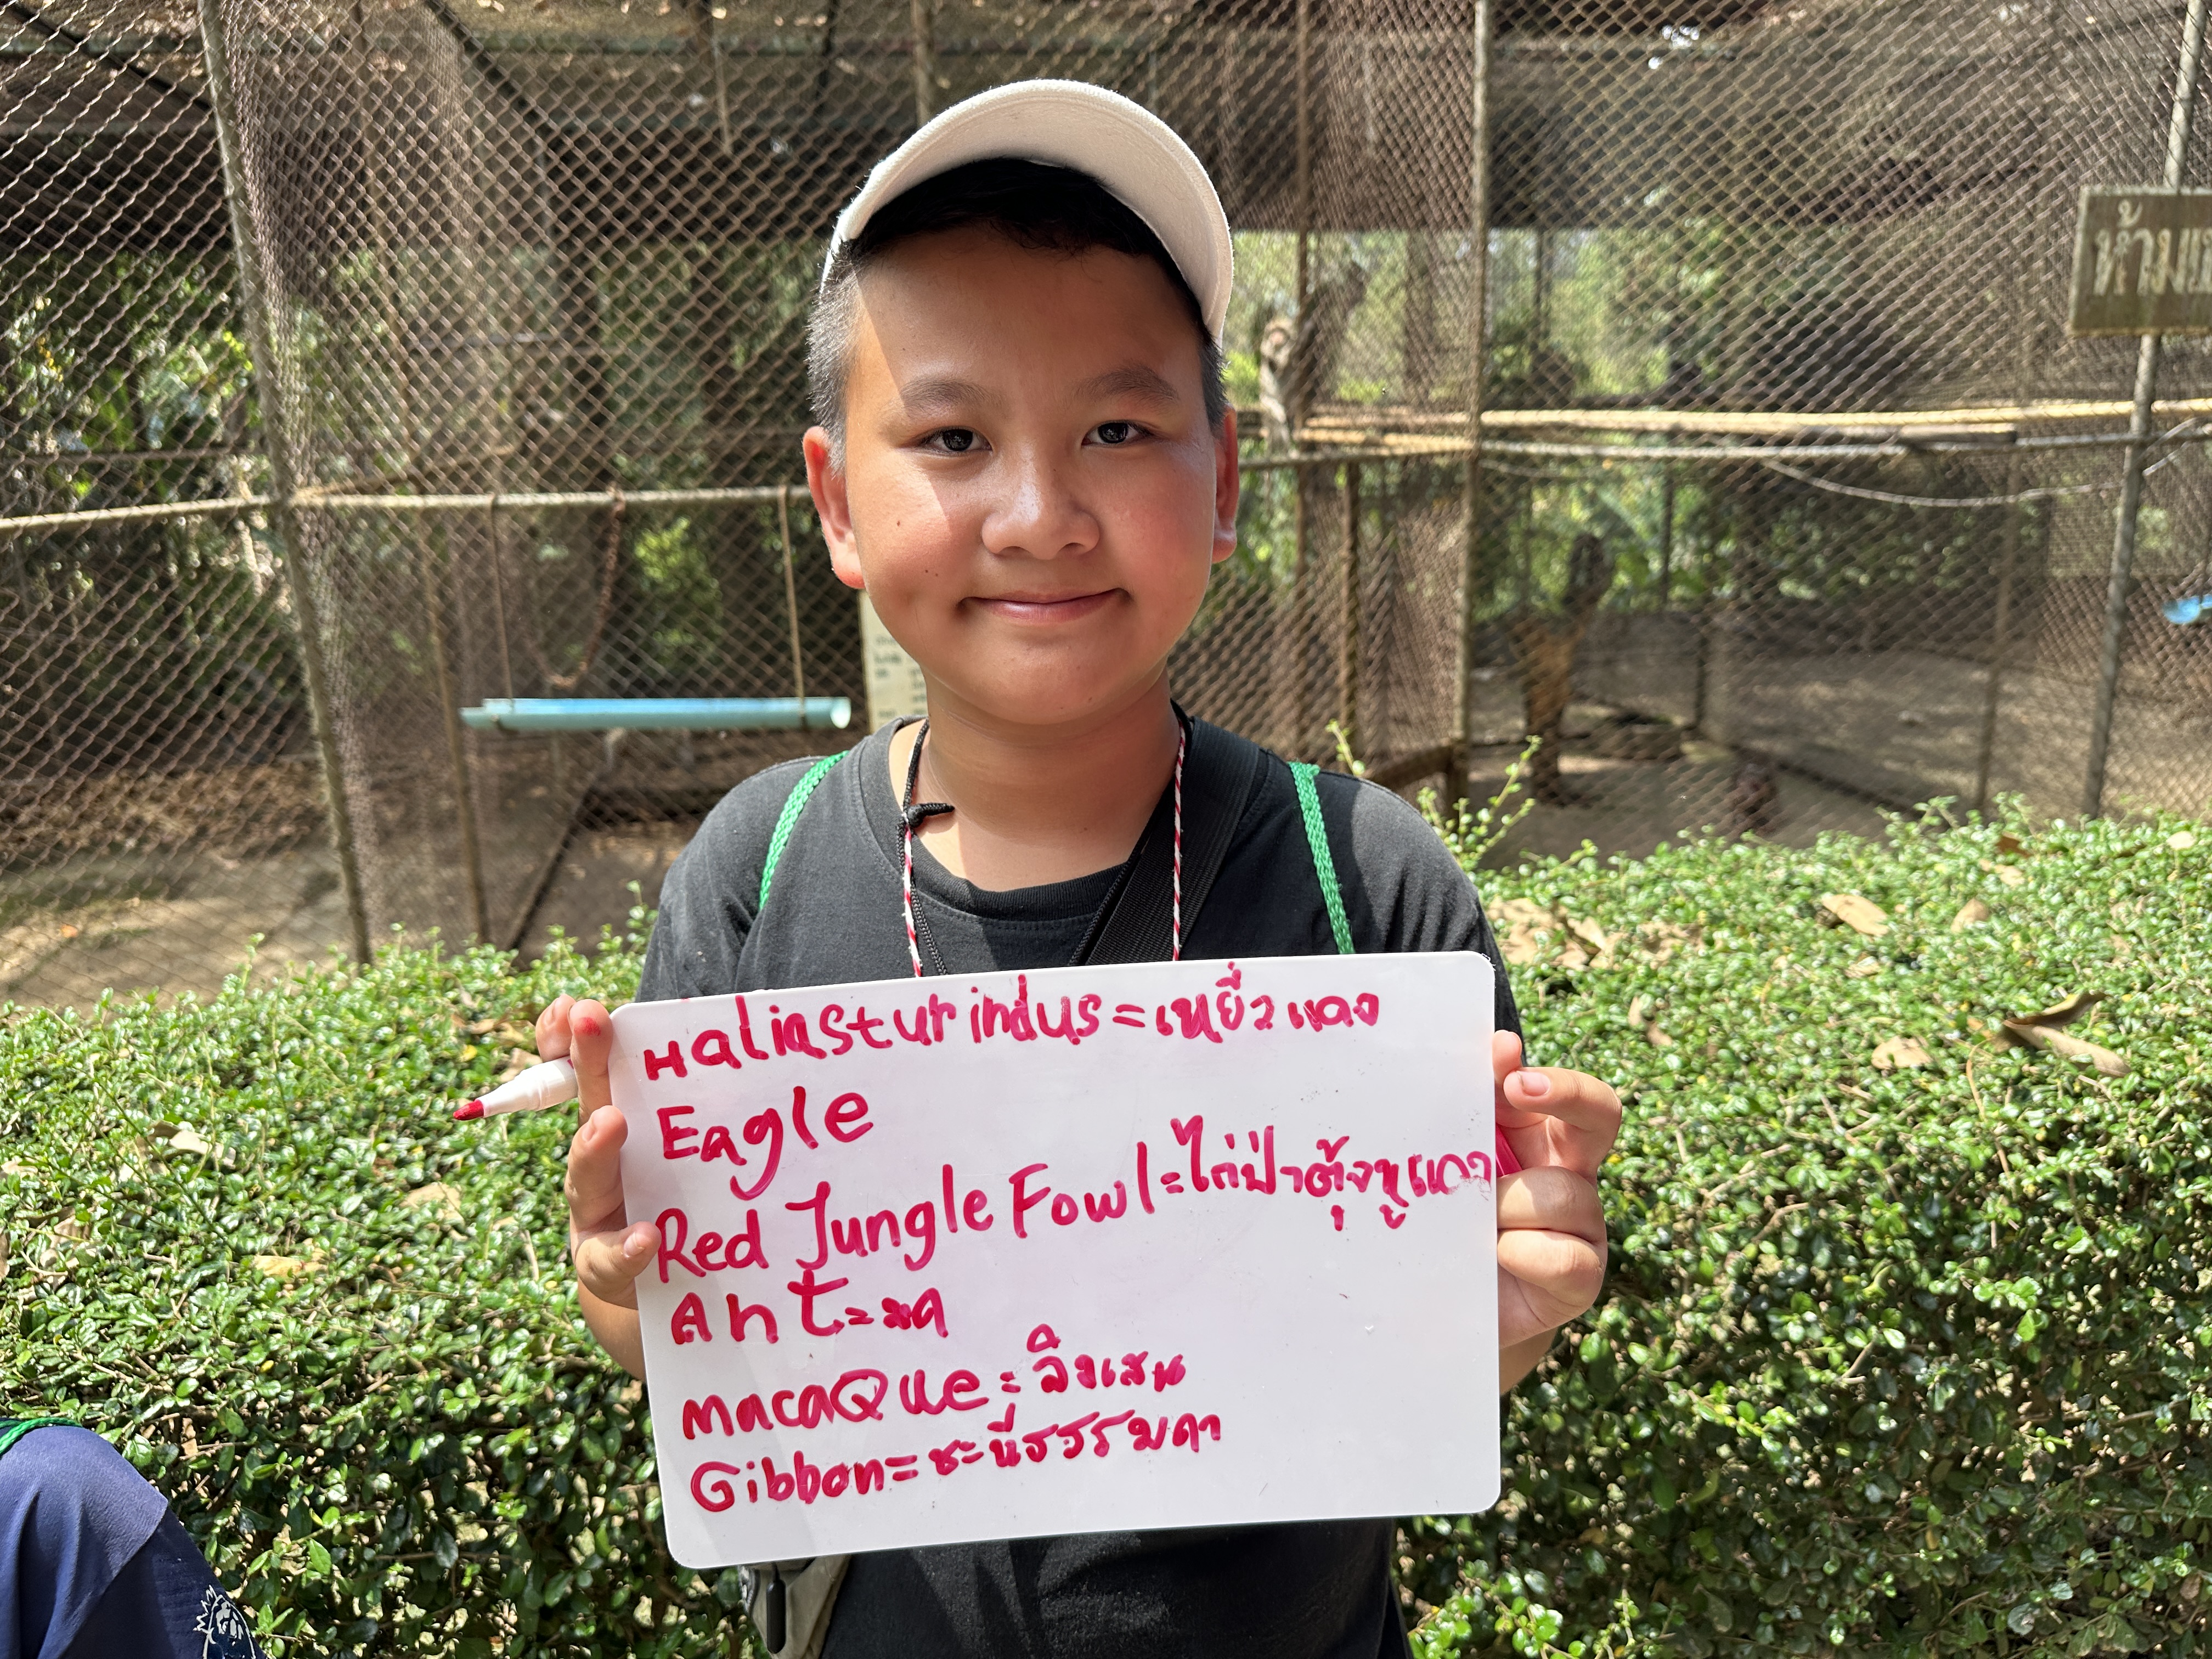 ห้าม
Haliastur indus = เหยี่วแดง
Eagle
Red Jungle Fowl = ไก่ป่าตุ้งหูแดง
Ant = มด
MacaQue = ลิงเสน
Gibbon = ชะนีธรรมดา